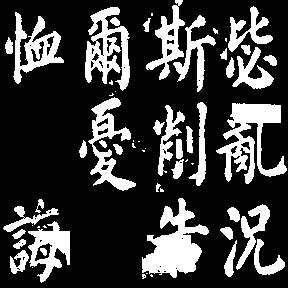 毖亂況
斯削告
爾憂
恤誨